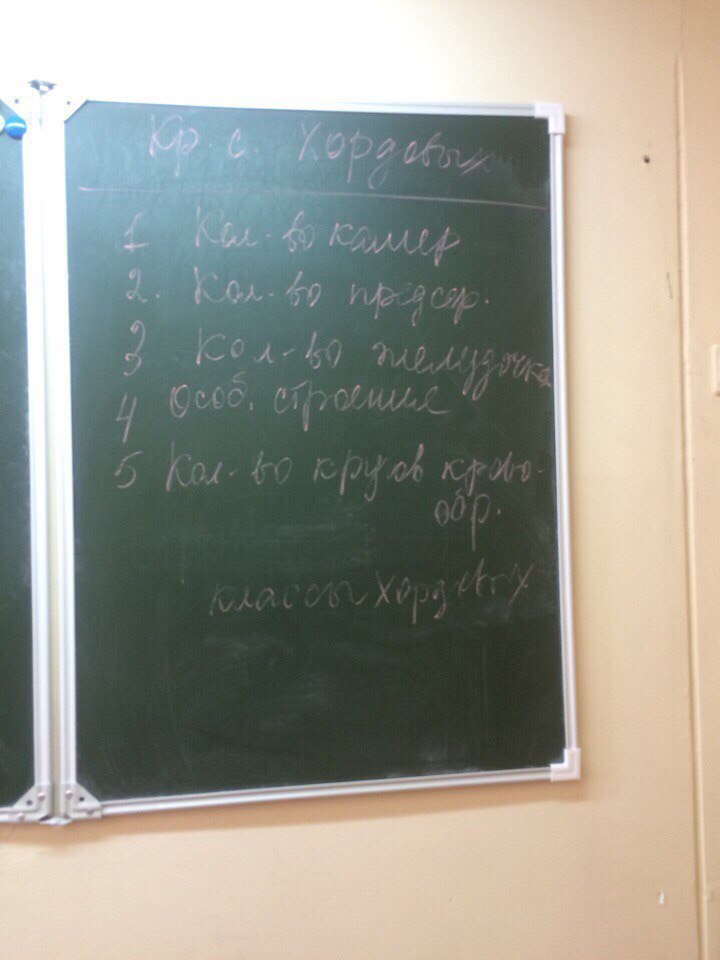 Кр. с. Хордовых
1 Кол-во камер
2. Кол-во предсер.
3 Кол-во желудочка
4 Особ. строения
5 Кол-во кругов крово-
обр.
классы хордовых